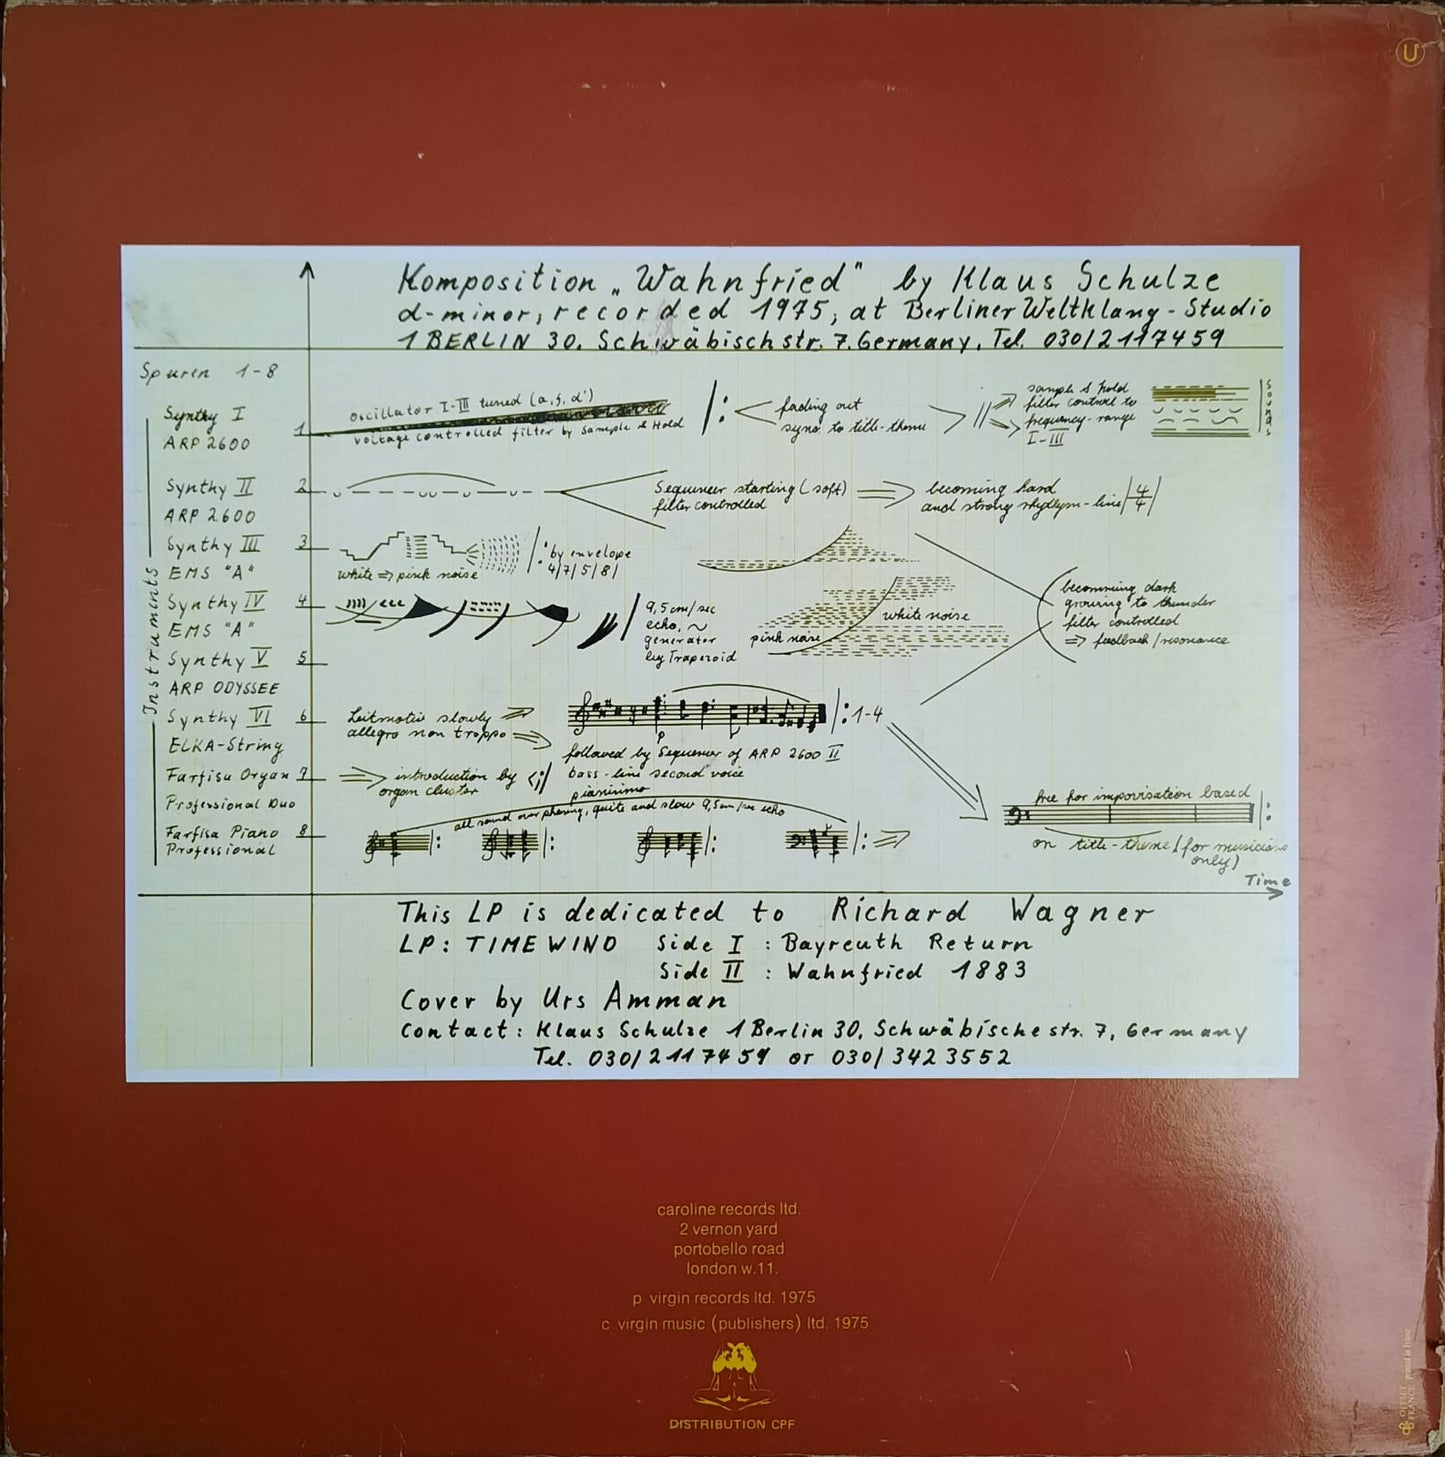 U
Komposition „Wahnfried" by Klaus Schulze
d-minor, recorded 1975, at Berliner Weltklang-Studio
1 BERLIN 30. Schwäbischstr. 7. Germany, Tel. 030/2117459
Spuren 1-8
Instruments
Synthy I 1
ARP 2600
oscillator I-III tuned (a, f, d')
voltage controlled filter by Sample & Hold
fading out
sync. to title-theme
sample & hold
filter control to
frequency-range
I-III
sounds
Synthy II 2
ARP 2600
Sequencer starting (soft)
filter controlled
becoming hard
and strong rhythym-line 4/4
Synthy III 3
EMS "A"
white ⇒ pink noise
by envelope
4/7/5/8/
Synthy IV 4
EMS "A"
9,5 cm/sec
echo, ~
generator
by Trapezoid
pink noise
white noise
becomming dark
growing to thunder
filter controlled
⇒ feedback/resonance
Synthy V 5
ARP ODYSSEE
Synthy VI 6
ELKA-String
Leitmotiv slowly
allegro non troppo
p
1-4
followed by Sequencer of ARP 2600 II
bass-line second voice
Farfisa Organ 7
Professional Duo
introduction by
organ cluster
pianissimo
all sound over phasing, quite and slow 9,5cm/sec echo
Farfisa Piano 8
Professional
free for improvisation based
on title-theme (for musicians
only)
Time
This LP is dedicated to Richard Wagner
LP: TIMEWIND Side I : Bayreuth Return
Side II : Wahnfried 1883
Cover by Urs Amman
Contact: Klaus Schulze 1 Berlin 30, Schwäbischestr. 7, Germany
Tel. 030/2117459 or 030/3423552
caroline records ltd.
2 vernon yard
portobello road
london w.11.
p virgin records ltd. 1975
c virgin music (publishers) ltd. 1975
DISTRIBUTION CPF